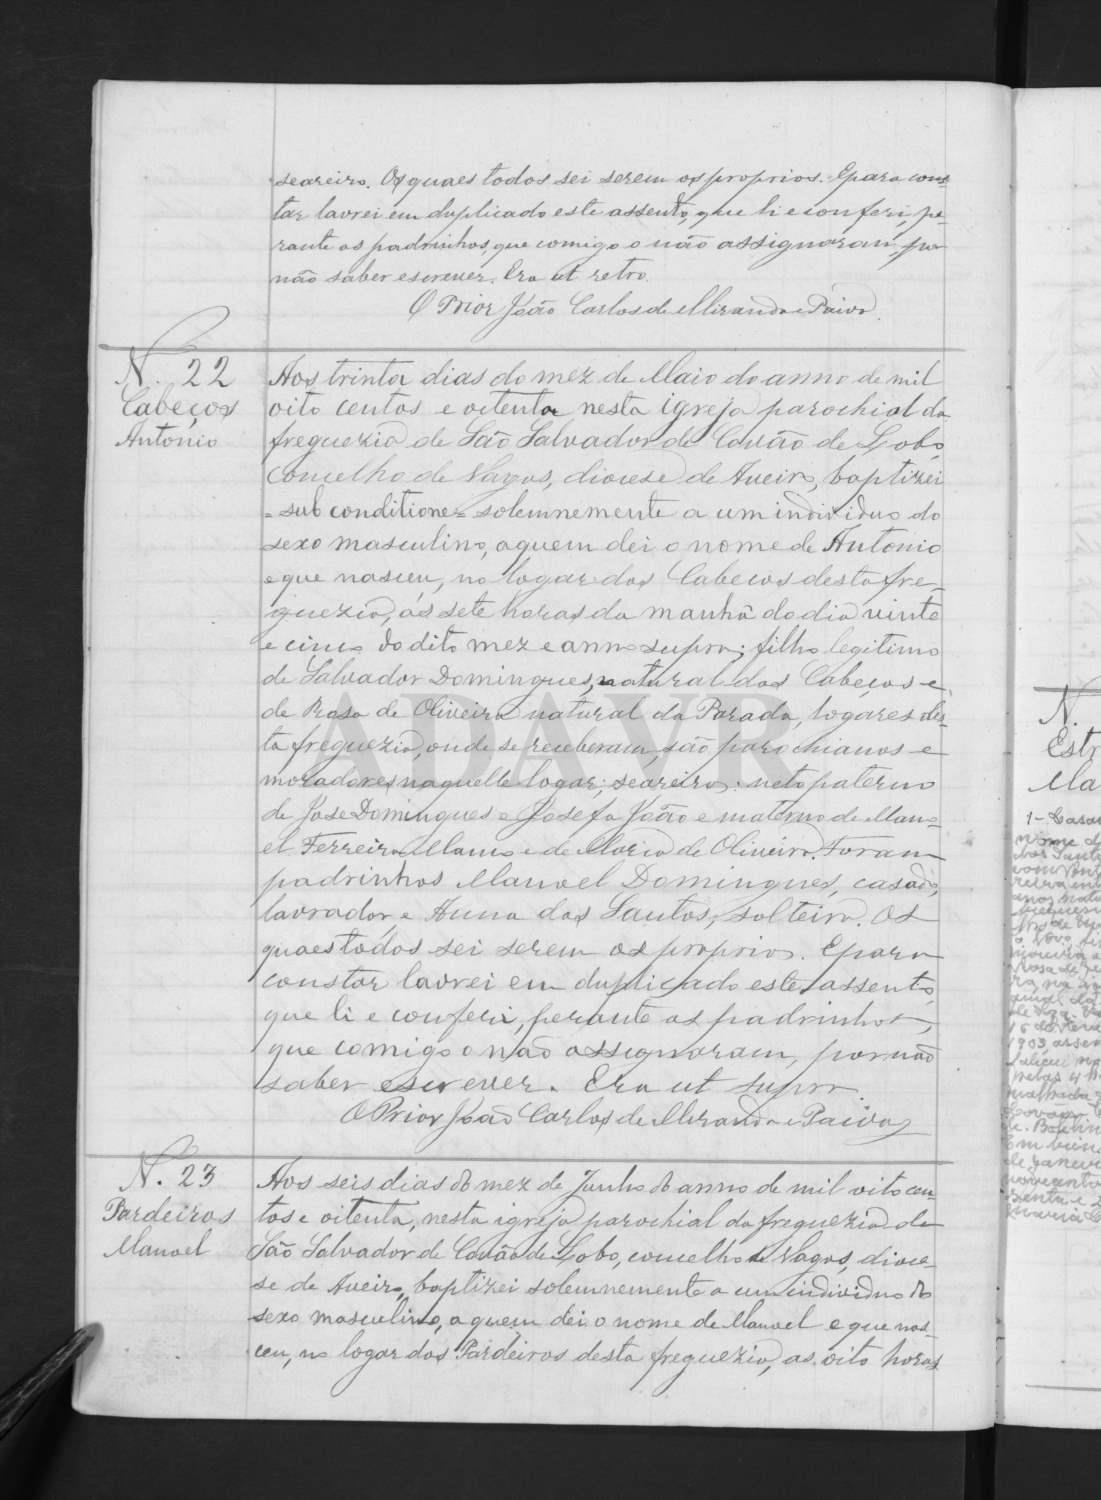 seareiro. Os quaes todos sei serem os proprios. E para cons-
tar lavrei em duplicado este assento, que li e conferi, pe-
rante os padrinhos, que comigo o não assignaram, por
não saber escrever. Era ut retro.
O Prior João Carlos de Miranda e Paiva.
N. 22
Cabeços
Antonio
Aos trinta dias do mez de Maio do anno de mil
oito centos e oitenta nesta igreja parochial da
freguezia de São Salvador de Covão de Lobo,
concelho de Vagos, diocese de Aveiro, baptizei
= sub conditione = solemnemente a um individuo do
sexo masculino, a quem dei o nome de Antonio
e que nasceu, no logar dos Cabeços desta fre-
guezia, ás sete horas da manhã do dia vinte
e cinco do dito mez e anno supra; filho legitimo
de Salvador Domingues, natural dos Cabeços e
de Rosa de Oliveira natural da Parada, logares des-
ta freguezia, onde se receberam, são parochianos e
moradores naquelle logar; seareiros: neto paterno
de José Domingues e Josefa João e materno de Mano-
el Ferreira e de Maria de Oliveira. Foram
padrinhos Manoel Domingues, casado,
lavrador, e Anna dos Santos, solteira. Os
quaes todos sei serem os proprios. E para
constar lavrei em duplicado este assento,
que li e conferi, perante os padrinhos,
que comigo o não assignaram, por não
saber escrever. Era ut supra.
O Prior João Carlos de Miranda e Paiva
N. 23
Pardeiros
Manoel
Aos seis dias do mez de Junho do anno de mil oito cen-
tos e oitenta, nesta igreja parochial da freguezia de
São Salvador de Covão de Lobo, concelho de Vagos, dioce-
se de Aveiro, baptizei solemnemente a um individuo do
sexo masculino, a quem dei o nome de Manoel e que nas-
ceu, no logar dos Pardeiros desta freguezia, as oito horas
ADAVR
N.
Estr
Ma